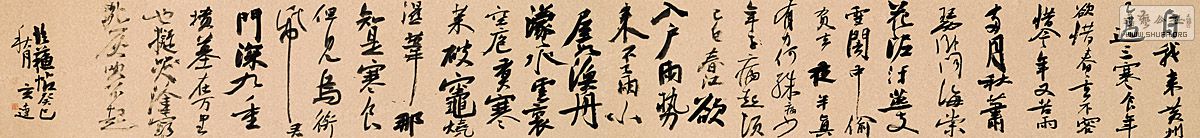 自我來黃州
已過三寒食年
欲惜春去不容
惜今年又苦雨
兩月秋蕭
瑟臥聞海棠
花泥汙燕支
雪闇中偷
負去夜半真
有力何殊病少
年子病起須
已白春江欲
入戶雨勢
來不已雨小
屋如漁舟
濛水雲裏
空庖煮寒
菜破竈燒
濕葦那
知是寒食
但見烏銜
帋君
門深九重
墳墓在万里
也擬哭塗窮
死灰吹不起
蘇帖癸巳
秋月